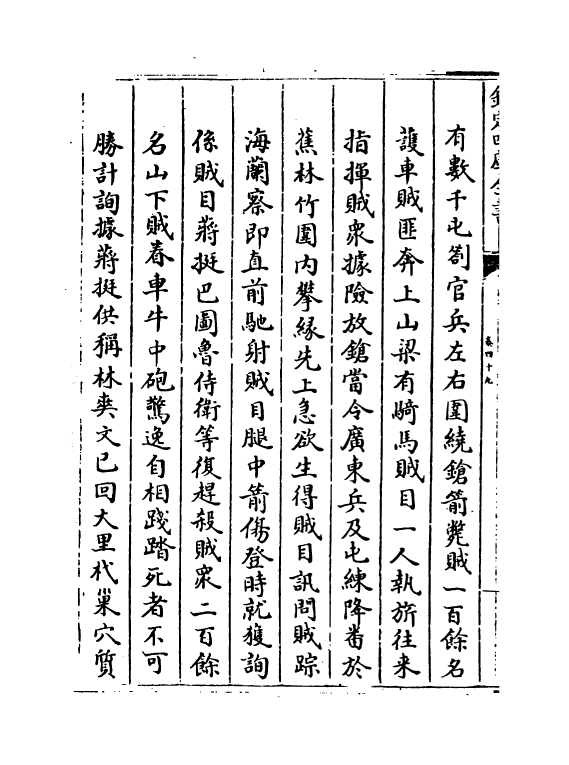 欽定四庫全書
卷四十九
有數千屯劄官兵左右圍繞鎗箭斃賊一百餘名
護車賊匪奔上山梁有騎馬賊目一人執旂往来
指揮賊衆據險放鎗當令廣東兵及屯練降番於
蕉林竹圍内攀縁先上急欲生得賊目訊問賊踪
海蘭察即直前馳射賊目腿中箭傷登時就獲詢
係賊目蔣挺巴圖魯侍衛等復趕殺賊衆二百餘
名山下賊眷車牛中砲驚逸自相踐踏死者不可
勝計詢據蔣挺供稱林爽文已回大里杙巢穴質